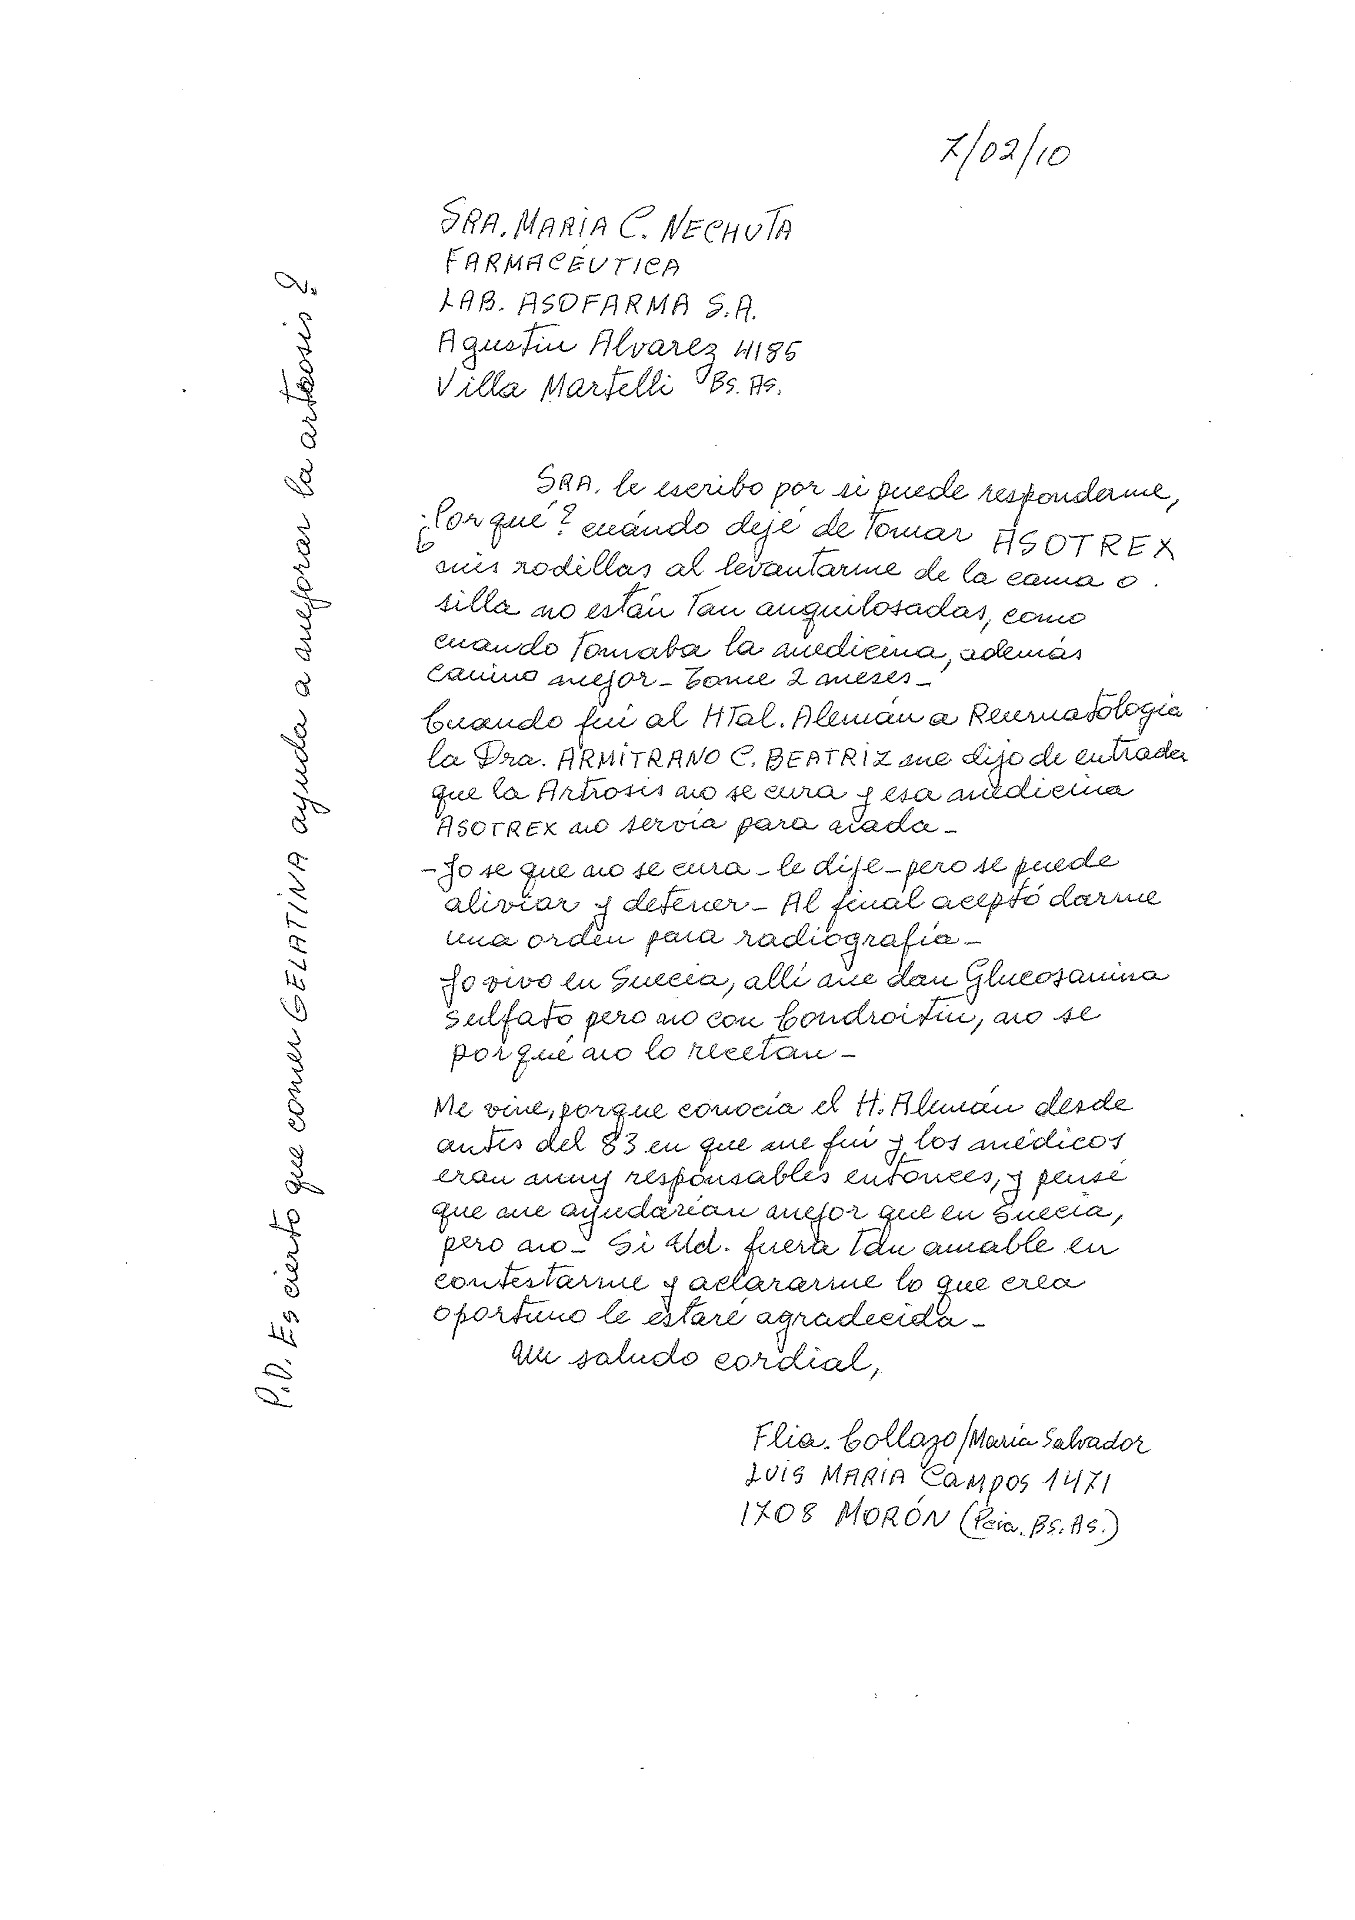 7/02/10
SRA. MARÍA C. NECHUTA
FARMACÉUTICA
LAB. ASOFARMA S.A.
Agustin Alvarez 4185
Villa Martelli Bs. As.
SRA. le escribo por si puede responderme,
¿Por qué? cuándo dejé de tomar ASOTREX
mis rodillas al levantarme de la cama o
silla no están tan anquilosadas, como
cuando tomaba la medicina, además
camino mejor - Tome 2 meses -
Cuando fuí al HTal. Alemán a Reumatología
la Dra. ARMITRANO C. BEATRIZ me dijo de entrada
que la Artrosis no se cura y esa medicina
ASOTREX no servía para nada -
- Yo se que no se cura - le dije - pero se puede
aliviar y detener - Al final aceptó darme
una orden para radiografía -
Yo vivo en Suecia, allí me dan Glucosamina
sulfato pero no con Condroitin, no se
por qué no lo recetan -
Me vine, porque conocía el H. Alemán desde
antes del 83 en que me fuí y los médicos
eran muy responsables entonces, y pensé
que me ayudarían mejor que en Suecia,
pero no - Si Ud. fuera tan amable en
contestarme y aclararme lo que crea
oportuno le estaré agradecida -
Un saludo cordial,
Flia. Collazo/María Salvador
LUIS MARIA CAMPOS 1471
1708 MORÓN (Pcia. BS. AS.)
P.D. Es cierto que comer GELATINA ayuda a mejorar la artrosis?